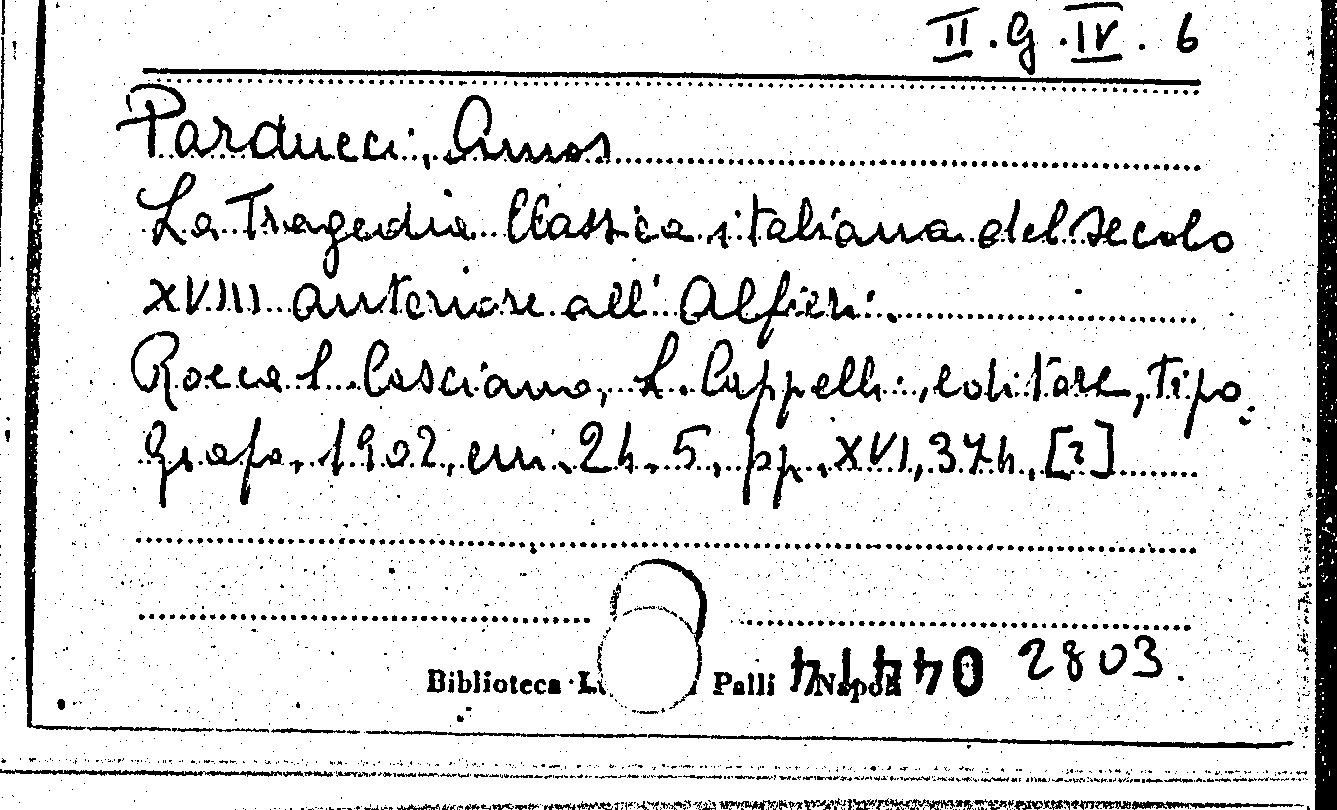 II.G.IV.6
Parducci, Amos
La Tragedia Classica italiana del secolo
XVIII anteriore all'Alfieri.
Rocca S. Casciano, L. Cappelli, editore, tipo.
grafo, 1902, cm. 24.5, pp. XVI, 374, [2]
Biblioteca Palli Napoli
2803.